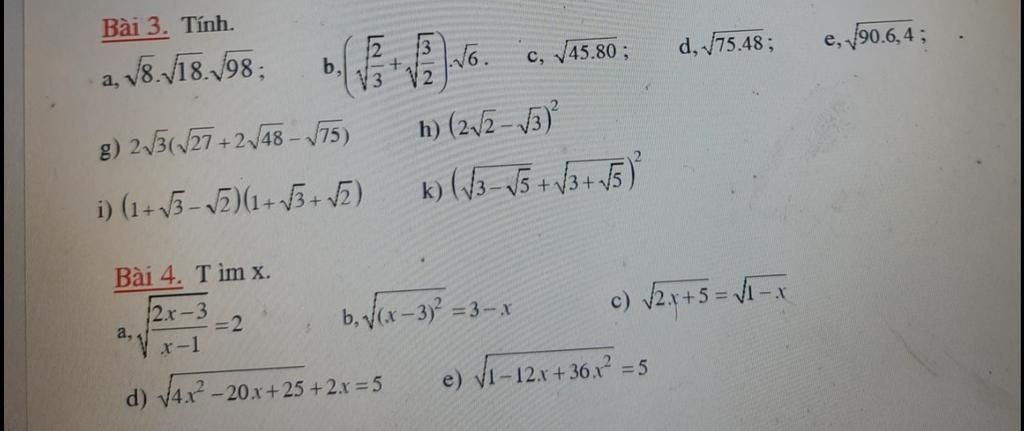 Bài 3. Tính.
a, √8.√18.√98 ; b, (√(2/3) + √(3/2)).√6 . c, √(45.80) ; d, √(75.48) ; e, √(90.6,4) ;
g) 2√3(√27 + 2√48 − √75) h) (2√2 − √3)²
i) (1+√3 − √2)(1+√3 + √2) k) (√(3−√5) + √(3+√5))²
Bài 4. T ìm x.
a, √((2x−3)/(x−1)) = 2 b, √((x−3)²) = 3 − x c) √(2x+5) = √(1−x)
d) √(4x² −20x+25) + 2x = 5 e) √(1−12x+36x²) = 5